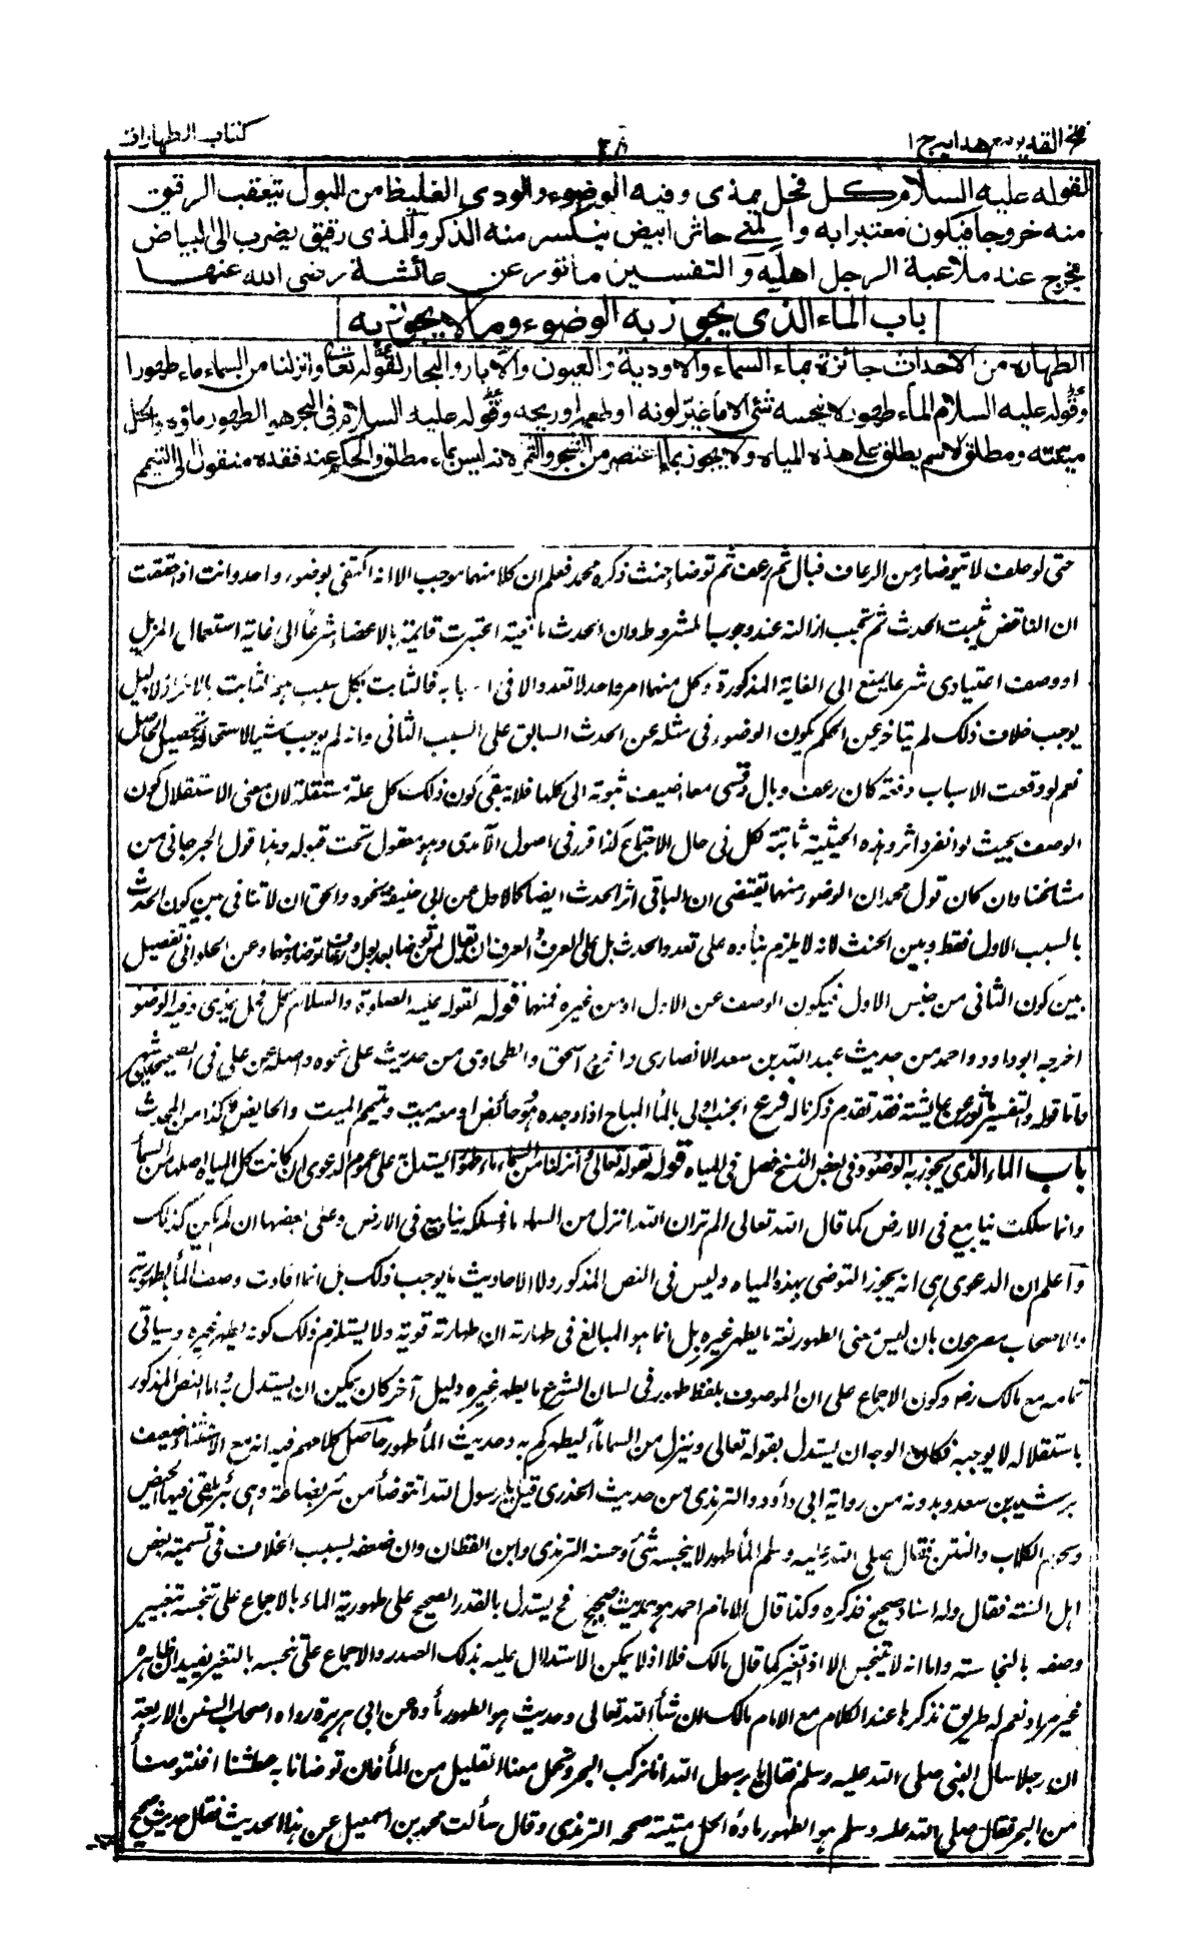 فتح القدير مع هدايه ج ١
٢٨
كتاب الطهارات
لقوله عليه السلام كل فحل يمذى وفيه الوضوء والودى الغليظ من البول يتعقب الرقيق
منه خروجا فيكون معتبرا به والمنى حاثر ابيض ينكسر منه الذكر والمذى رقيق يضرب الى البياض
يخرج عند ملاعبة الرجل اهله والتفسير مأثور عن عائشة رضى الله عنها
باب الماء الذى يجوز به الوضوء وما لا يجوز به
الطهارة من الاحداث جائزة بماء السماء والاودية والعيون والآبار والبحار لقوله تعالى وانزلنا من السماء ماء طهورا
وقوله عليه السلام الماء طهور لا ينجسه شئ الا ما غير لونه او طعمه او ريحه وقوله عليه السلام فى البحر هو الطهور ماؤه والحل
ميتته ومطلق الاسم يطلق على هذه المياه ولا يجوز بما اعتصر من الشجر والثمر لانه ليس بماء مطلق والحكم عند فقده منقول الى التيمم
حتى لو حلف لا يتوضاء من الرعاف فبال ثم رعف ثم توضا حنث ذكره محمد فعلم ان كلا منهما موجب الا انه اكتفى بوضوء واحد وانت اذا حققت
ان الناقض يثبت الحدث ثم تجب ازالته عند وجوب المشروط وان الحدث مانعية اعتبرت قايمة بالاعضا شرعا الى غاية استعمال المزيل
او وصف اعتبارى شرعا يمنع الى الغاية المذكورة وكل منهما امر واحد لا تعدد الا فى اسبابه فالثابت بكل سبب هو الثابت بالآخر اذ لا دليل
يوجب خلاف ذلك لم يتاخر عن الحكم بكون الوضوء فى مثله عن الحدث السابق على السبب الثانى وانه لم يوجب شيأ لاستحالة تحصيل الحاصل
نعم لو وقعت الاسباب دفعة كان رعف وبال وقسى معا اضيف ثبوته الى كلها فلا يبقى كون ذلك كل علة مستقلة لان معنى الاستقلال كون
الوصف بحيث لو انفرد اثر وهذه الحيثية ثابتة لكل فى حال الاجتماع كذا قرر فى اصول الآمدى وهو معقول تحت قبوله وبذا قول الجرجانى من
مشائخنا وان كان قول محمد ان الوضوء منهما يقتضى ان الباقى اثر الحدث ايضا كالاول عن ابى حنيفة نحوه والحق ان لا تنافى بين كون الحدث
بالسبب الاول فقط وبين الحنث لانه لا يلزم بناءه على تعدد الحدث بل على العرف والعرف ان يقال لمن توضا بعد بول ورعاف توضا منهما وعن الحلوانى تفصيل
بين كون الثانى من جنس الاول فيكون الوصف عن الاول او من غيره فمنهما قوله لقوله عليه الصلوة والسلام كل فحل يمذى وفيه الوضو
اخرجه ابو داود واحمد من حديث عبد الله بن سعد الانصارى واخرج اسحق والطحاوى من حديث على نحوه واصله عن على فى الصحيحين شهير
واما قوله والتفسير ماثور عن عايشة فقد تقدم ذكرنا له فرع الجنب اولى بالماء المباح اذا وجده هو وحائض او معه ميت وييمم الميت والحايض وكذا من المحدث
باب الماء الذى يجوز به الوضوء وفى بعض النسخ فصل فى المياه قوله لقوله تعالى وانزلنا من السماء ماء طهورا استدل على عموم الدعوى ان كانت كل المياه اصلها من السماء
وانما سلكت ينابيع فى الارض كما قال الله تعالى الم تر ان الله انزل من السماء ماء فسلكه ينابيع فى الارض وعلى بعضها ان لم يكن كذلك
واعلم ان الدعوى هى انه يجوز التوضى بهذه المياه وليس فى النص المذكور ولا الاحاديث ما يوجب ذلك بل انما افادت وصف الماء بالطهورية
والاصحاب مصرحون بان ليس معنى الطهور لغة ما يطهر غيره بل انما هو المبالغ فى طهارته ان طهارته قوية ولا يستلزم ذلك كونه يطهر غيره وسياتى
تمامه مع مالك رضه وكون الاجماع على ان الموصوف بلفظ طهور فى لسان الشرع ما يطهر غيره دليل آخر كان يمكن ان يستدل به اما النص المذكور
باستقلاله لا يوجبه فكان الوجه ان يستدل بقوله تعالى وينزل من السماء ماء ليطهركم به وحديث الماء طهور حاصل كلامهم فيه انه مع الاستثناء ضعيف
برشيد بن سعد وبدونه من رواية ابى داود والترمذى من حديث الخدرى قيل يا رسول الله انتوضأ من بئر بضاعة وهى بئر يلقى فيها الحيض
ولحوم الكلاب والنتن فقال صلى الله عليه وسلم الماء طهور لا ينجسه شئ وحسنه الترمذى وابن القطان وان ضعفه بسبب اختلاف فى تسمية بعض
اهل السنة فقال وله اسناد صحيح فذكره وكذا قال الامام احمد هو حديث صحيح فح يستدل بالقدر الصحيح على طهورية الماء بالاجماع على تنجسه بتغيير
وصفه بالنجاسة واما انه لا يتنجس الا اذا تغير كما قال مالك فلا اذ لا يمكن الاستدلال عليه بذلك الصدر والاجماع على تنجسه بالتغير يفيد ان ظاهره
غير مراد نعم له طريق نذكرها عند الكلام مع الامام مالك ان شاء الله تعالى وحديث هو الطهور ماؤه عن ابى هريرة رواه اصحاب السنن الاربعة
ان رجلا سال النبى صلى الله عليه وسلم فقال يا رسول الله انا نركب البحر ونحمل معنا القليل من الماء فان توضانا به عطشنا افنتوضأ
من البحر فقال صلى الله عليه وسلم هو الطهور ماءه الحل ميتته صححه الترمذى وقال سألت محمد بن اسمعيل عن هذا الحديث فقال حديث صحيح